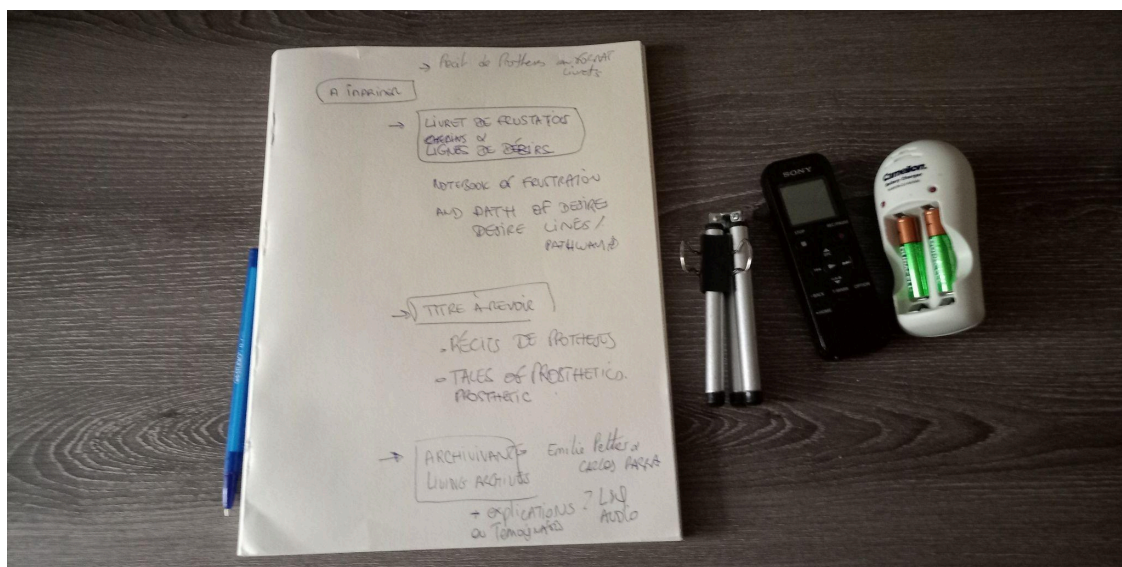 → Récit de Prothèses en FORMAT
Livrets
A IMPRIMER
→ LIVRET DE FRUSTATIOS
CHEMINS &
LIGNES DE DÉSIRS
NOTEBOOK OF FRUSTRATION
AND PATH OF DESIRE
DESIRE LINES /
PATHWAYS
→ TITRE À REVOIR
RÉCITS DE PROTHESES
TALES OF PROSTHETICS
PROSTHETIC
→ ARCHIVIVANTES
LIVING ARCHIVES
Emilie Peltier &
CARLOS PARRA
+ EXPLICATIONS
ou Témoignages
? LSQ
AUDIO
SONY
Camelion
Battery Charger